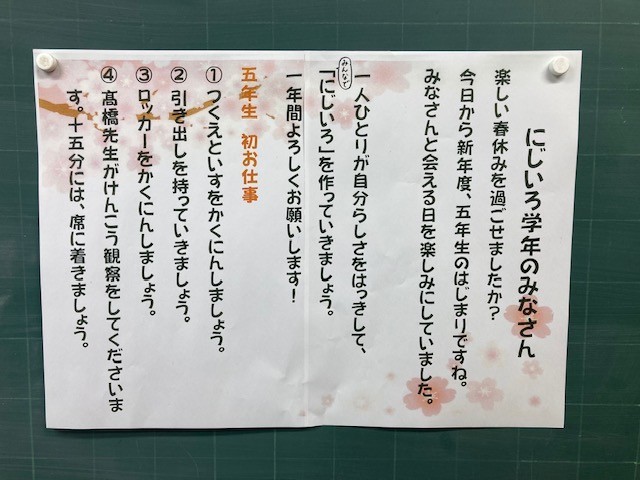 にじいろ学年のみなさん
楽しい春休みを過ごせましたか？
今日から新年度、五年生のはじまりですね。
みなさんと会える日を楽しみにしていました。
一人ひとりが自分らしさをはっきして、
みんなで
「にじいろ」を作っていきましょう。
一年間よろしくお願いします！
五年生　初お仕事
①つくえといすをかくにんしましょう。
②引き出しを持っていきましょう。
③ロッカーをかくにんしましょう。
④髙橋先生がけんこう観察をしてくださいま
す。十五分には、席に着きましょう。